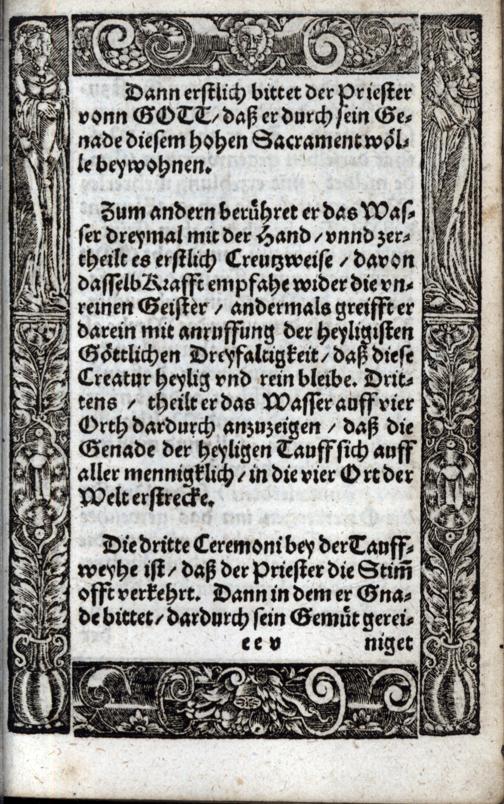 Dann erstlich bittet der Priester
vonn GOTT/ daß er durch sein Ge-
nade diesem hohen Sacrament wöl-
le beywohnen.
Zum andern berühret er das Was-
ser dreymal mit der Hand/ vnnd zer-
theilt es erstlich Creutzweise/ davon
dasselb Krafft empfahe wider die vn-
reinen Geister/ andermals greifft er
darein mit anruffung der heyligisten
Göttlichen Dreyfaltigkeit/ daß diese
Creatur heylig vnd rein bleibe. Drit-
tens/ theilt er das Wasser auff vier
Orth dardurch anzuzeigen/ daß die
Genade der heyligen Tauff sich auff
aller mennigklich/ in die vier Ort der
Welt erstrecke.
Die dritte Ceremoni bey der Tauff-
weyhe ist/ daß der Priester die Stim̃
offt verkehrt. Dann in dem er Gna-
de bittet/ dardurch sein Gemüt gerei-
e e v niget